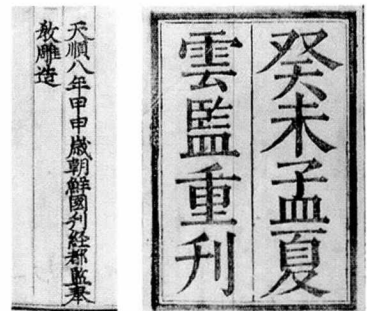 癸未孟夏
雲監重刊
天順八年甲申歳朝鮮國刊経都監奉
敎雕造